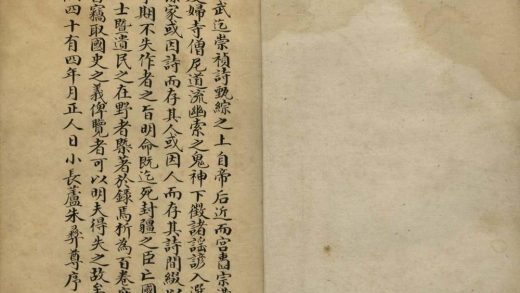 武迄崇禎詩甄綜之上自帝后近而宮壼宗
婦寺僧尼道流幽索之鬼神下徵諸謠諺入選
家或因詩而存其人或因人而存其詩間綴以
期不失作者之旨明命既迄死封疆之臣亡國
士暨遺民之在野者槩著於錄焉析為百卷庶
竊取國史之義俾覽者可以明夫得失之故
四十有四年月正人日小長蘆朱彝尊序